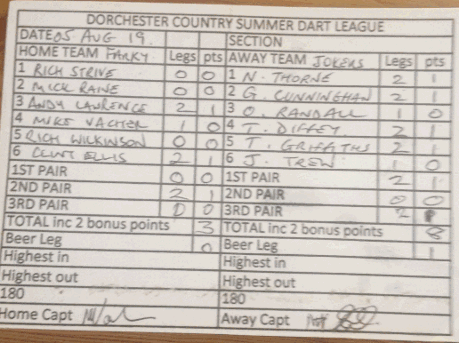 DORCHESTER COUNTRY SUMMER DART LEAGUE
DATE 05 AUG 19. SECTION
HOME TEAM FARKY Legs pts AWAY TEAM JOKERS Legs pts
1 RICH STRIVE 0 0 1 N. THORNE 2 1
2 MICK RAINE 0 0 2 G. CUNNINGHAN 2 1
3 ANDY LAWRENCE 2 1 3 O. RANDALL 1 0
4 MIKE VACHER 1 0 4 T. DIFFEY 2 1
5 RICH WILKINSON 0 0 5 T. GRIFFITHS 2 1
6 CLINT ELLIS 2 1 6 J. TREW 1 0
1ST PAIR 0 0 1ST PAIR 2 1
2ND PAIR 2 1 2ND PAIR 0 0
3RD PAIR 0 0 3RD PAIR 2 1
TOTAL inc 2 bonus points 3 TOTAL inc 2 bonus points 8
Beer Leg 0 Beer Leg 1
Highest in Highest in
Highest out Highest out
180 180
Home Capt Away Capt